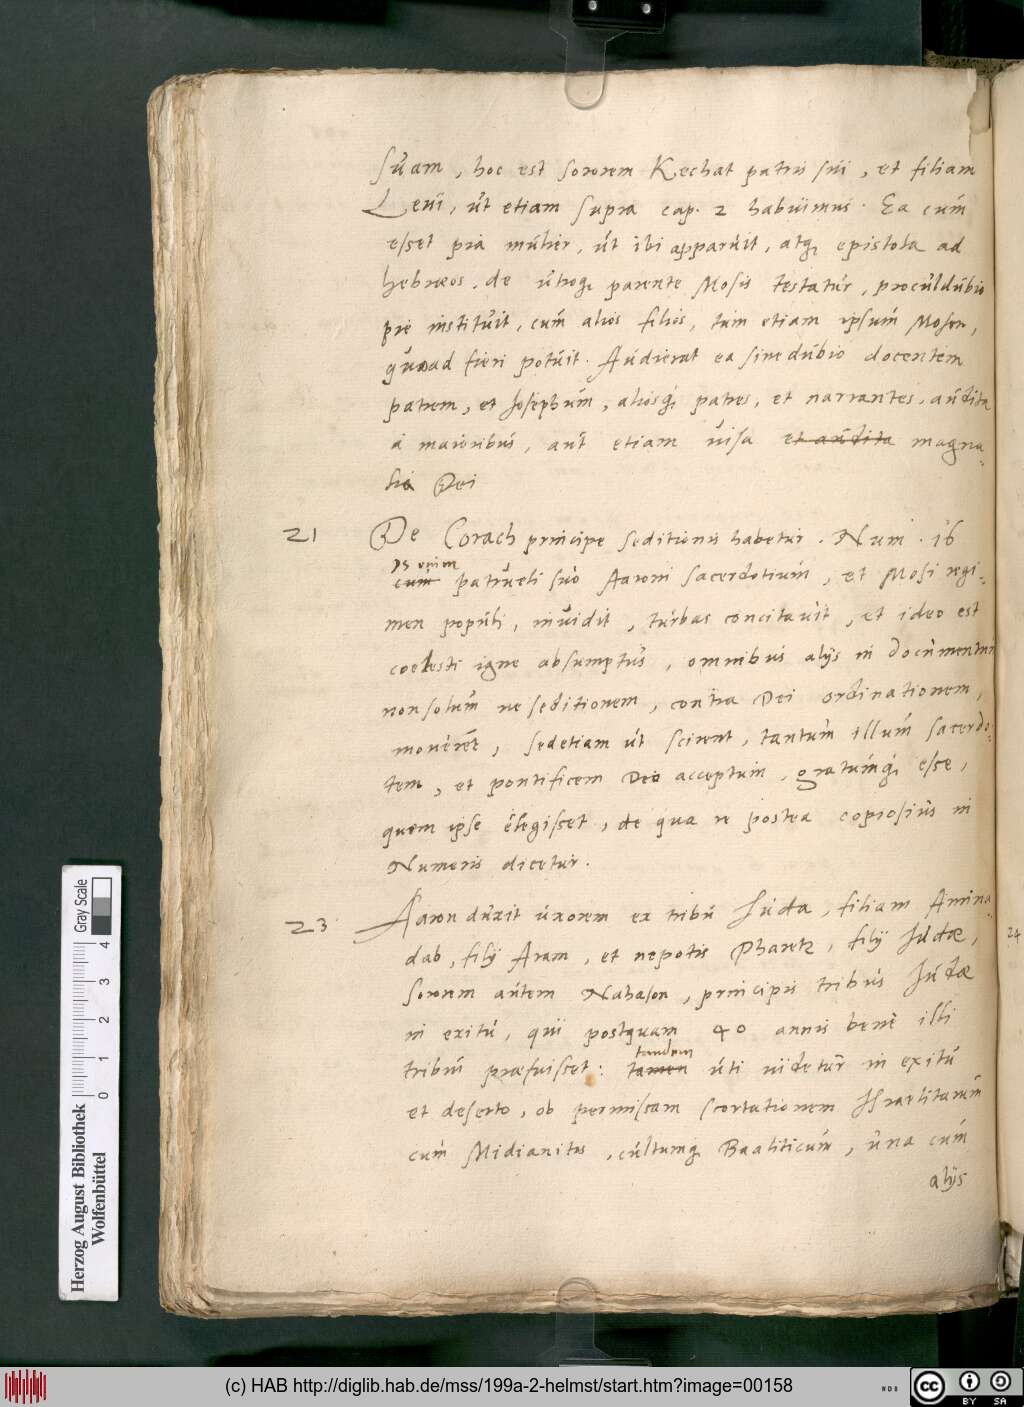 suam, hoc est sororem Kechat patris sui, et filiam
Levi, ut etiam supra cap. 2 habuimus. Ea cum
esset pia mulier, ut ibi apparuit, atq epistola ad
hebraeos, de utroq parente Mosis testatur, proculdubio
pie instituit, cum alios filios, tum etiam ipsum Mosen,
quoad fieri potuit. Audierat ea sine dubio docentem
patrem, et Josephum, aliosq patres, et narrantes, audita
a maioribus, aut etiam visa et audita magna-
lia Dei
21 De Corach principe seditionis habetur. Num. 16
is enim
cum patrueli suo Aaroni sacerdotium, et Mosi regi-
men populi, invidit, turbas concitavit, et ideo est
coelesti igne absumptus, omnibus alijs in documentum
non solum ne seditionem, contra Dei ordinationem,
moverent, sed etiam ut scirent, tantum illum sacerdo-
tem, et pontificem Deo acceptum, gratumq esse,
quem ipse elegisset, de qua re postea copiosius in
Numeris dicetur.
23 Aaron duxit uxorem ex tribu Juda, filiam Amina-
dab, filij Aram, et nepotis Pharetz, filij Judae,
sororem autem Nahason, principis tribus Judae
in exitu, qui postquam 40 annis bene illi
tandem
tribui praefuisset: tamen uti videtur in exitu
et deserto, ob permissam scortationem Israelitarum
cum Midianitis, cultumq Baaliticum, una cum
alijs
24
Herzog August Bibliothek
Wolfenbüttel
0 1 2 3 4
Gray Scale
(c) HAB http://diglib.hab.de/mss/199a-2-helmst/start.htm?image=00158
cc BY SA